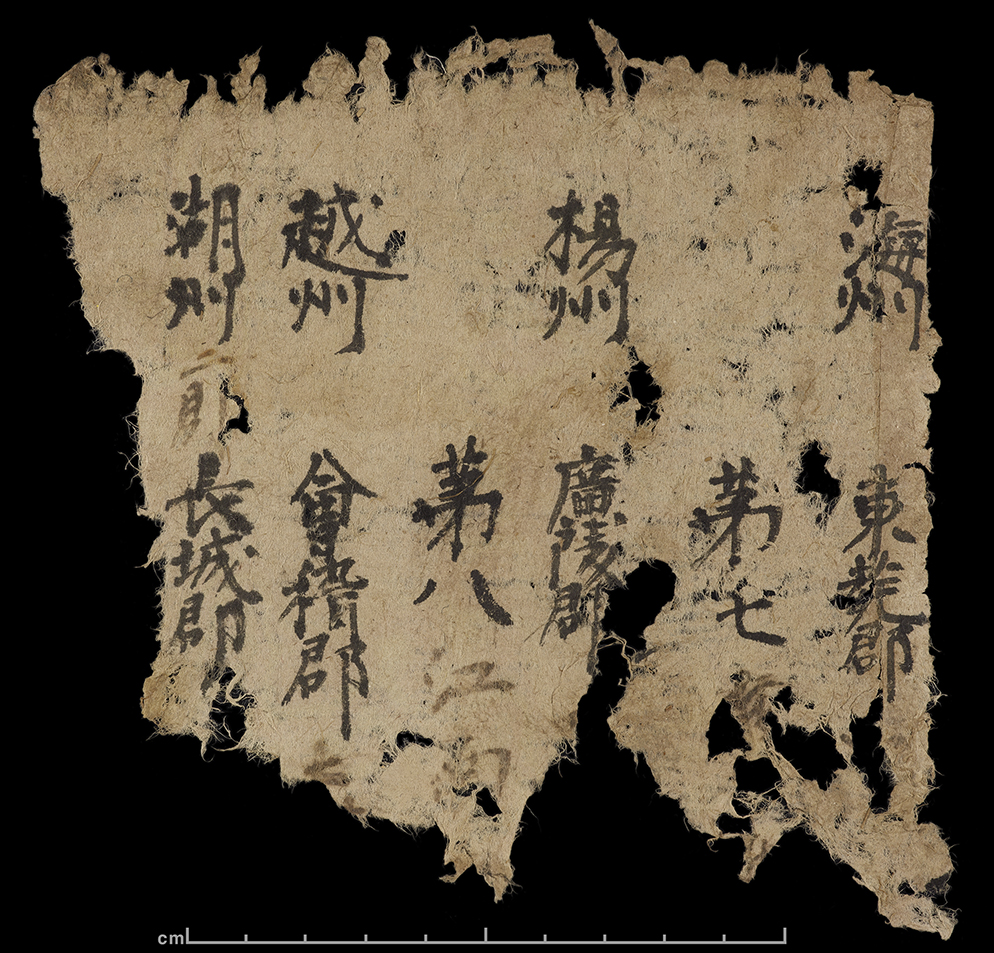 海州 東莞郡
苐七
楊州 廣陵郡
苐八 江南
越州 會稽郡
湖州 長城郡
cm